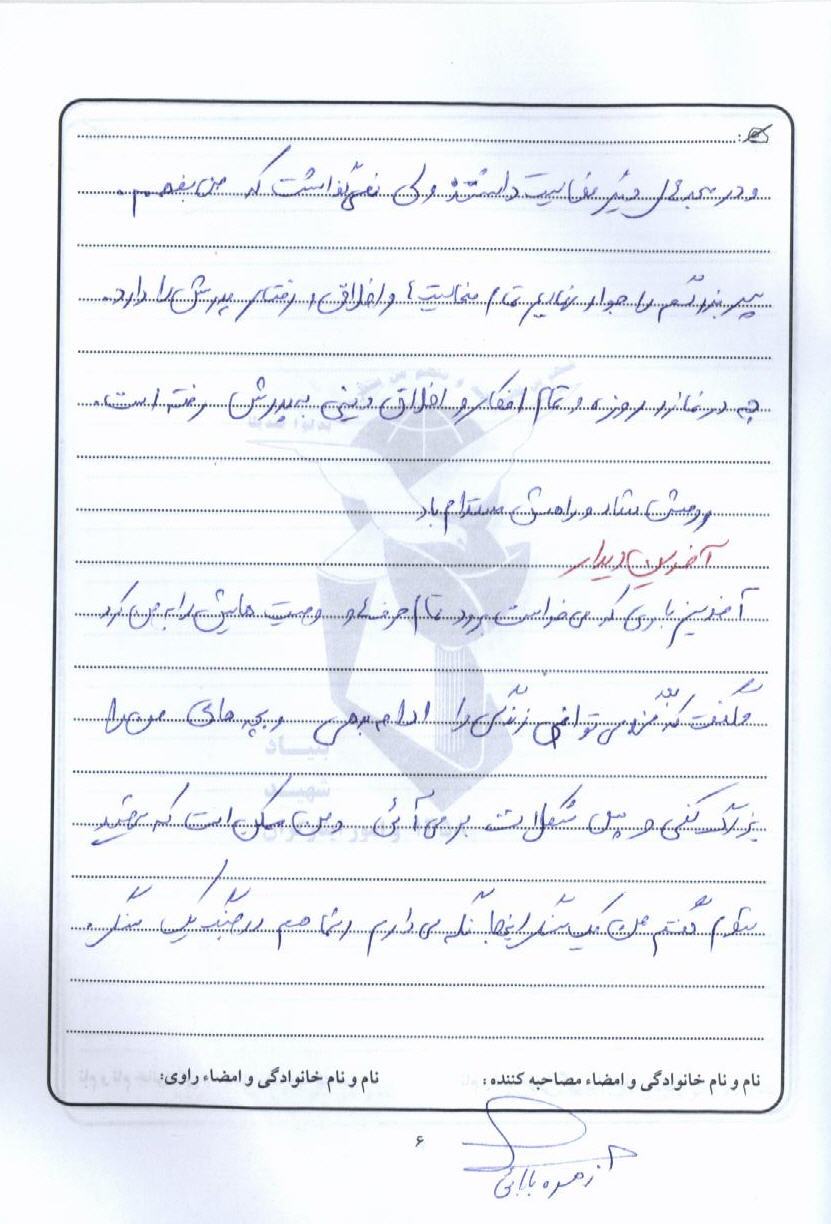 و در جبهه‌های دیگر فعالیت داشتند ولی نمی‌گذاشت که من بفهمم.
پسر بزرگم را جواد نهادیم تمام فعالیت‌ها و اخلاق و رفتار پدرش را دارد.
چه در نماز و روزه و تمام افکار و اخلاق دینی به پدرش رفته است.
روحش شاد و راهش مستدام باد
آخرین دیدار
آخرین باری که می‌خواست برود تمام حرف‌ها و وصیت هایش را به من کرد
و گفت که تو می توانی زندگی را ادامه بدهی و بچه های من را
بزرگ کنی و پس مشکلات بر می آئی و من ممکن است که شهید
بشوم گفتم من یک سنگر اینجا نگه می دارم و شما هم در جبهه یک سنگر.
نام و نام خانوادگی و امضاء مصاحبه کننده : نام و نام خانوادگی و امضاء راوی:
بابائی
۶
بنیاد
شهید